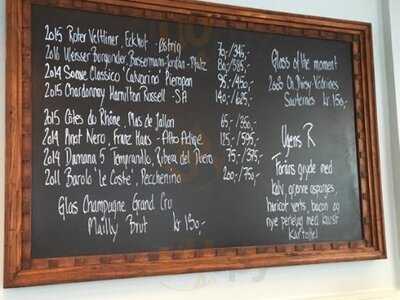 2015 Roter Veltliner, Eckhof - Østrig 70,-/345,-
2014 Soave Classico 'Calvarino' Pieropan 95,-/450,-
2015 Chardonnay Hamilton Russell - SA 140,-/625,-
2015 Côtes du Rhône, Mas de
2014 Pinot Nero, Franz Haas - Alto Adige 125,-/595,-
2014 Damana 5 Tempranillo, Ribera del Duero 75,-/375,-
2011 Barolo 'Le Coste', Pecchenino 200,-/750,-
Glas Champagne Grand Cru
Mailly Brut kr 150,-
Glass of the moment
2005 Ch.
Sauternes kr 150,-
Ugens R
gryde med
kalv, grønne asparges,
haricot verts, bacon og
nye med
Kartofler